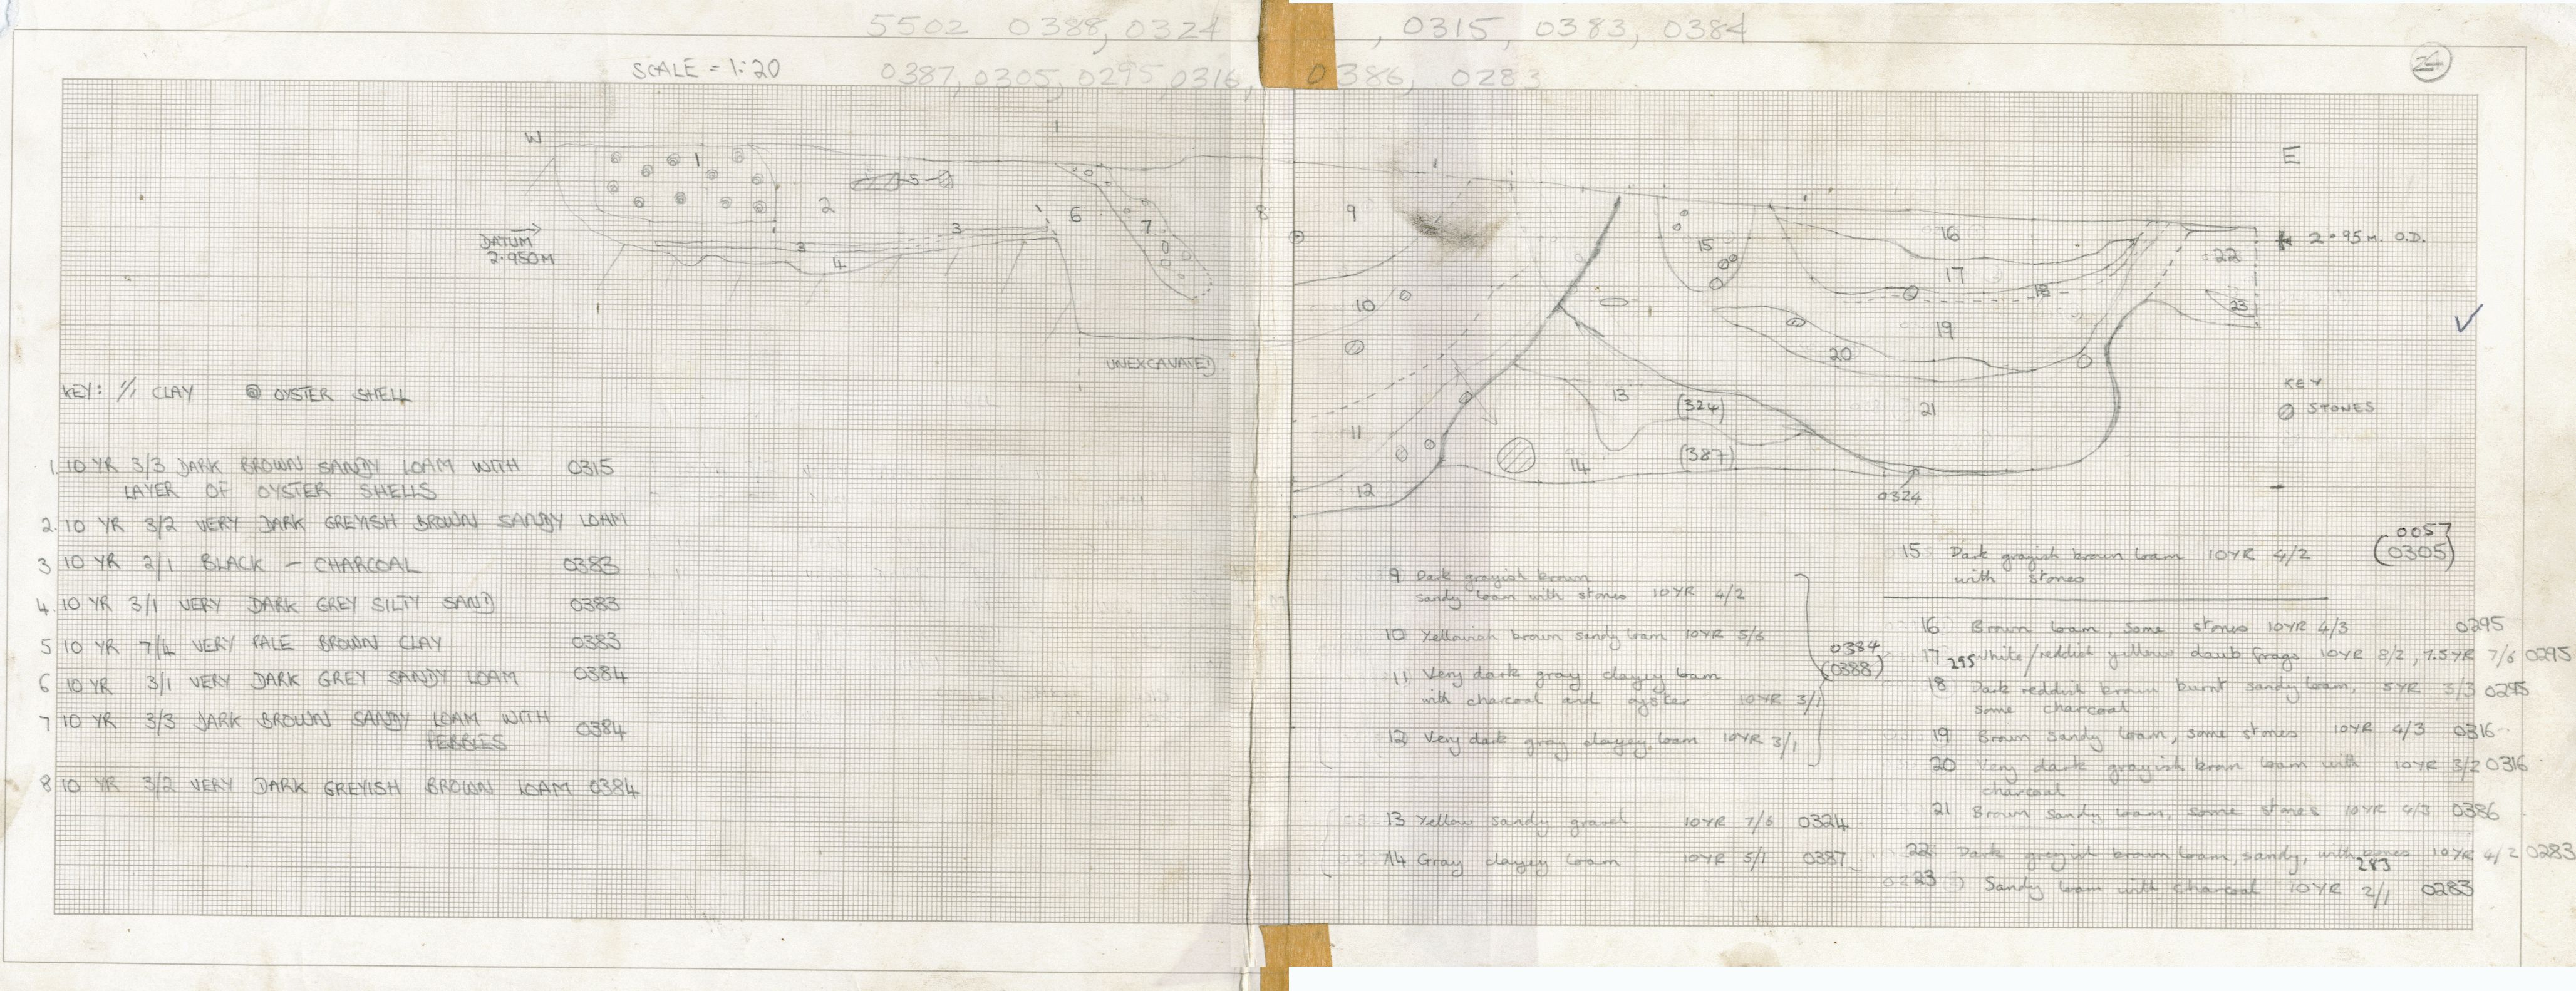 5502 0388, 0324 , 0315, 0383, 0384
SCALE = 1:20 0387, 0305, 0295, 0316, 0386, 0283
24
W
1
E
1
5
2
6
7
8
9
16
15
3
3
4
DATUM
2.950M
2.95 m. O.D.
22
17
18
23
10
19
20
UNEXCAVATED
KEY: CLAY OYSTER SHELL
13
(324)
21
KEY
STONES
11
14
(387)
12
0324
1. 10 YR 3/3 DARK BROWN SANDY LOAM WITH 0315
LAYER OF OYSTER SHELLS
2. 10 YR 3/2 VERY DARK GREYISH BROWN SANDY LOAM
3 10 YR 2/1 BLACK - CHARCOAL 0383
4. 10 YR 3/1 VERY DARK GREY SILTY SAND 0383
5 10 YR 7/4 VERY PALE BROWN CLAY 0383
6 10 YR 3/1 VERY DARK GREY SANDY LOAM 0384
7 10 YR 3/3 DARK BROWN SANDY LOAM WITH 0384
PEBBLES
8 10 YR 3/2 VERY DARK GREYISH BROWN LOAM 0384
9 Dark grayish brown
sandy loam with stones 10YR 4/2
10 Yellowish brown sandy loam 10YR 5/6
0384
(0388)
11 Very dark gray clayey loam
with charcoal and oyster 10YR 3/1
12 Very dark gray clayey loam 10YR 3/1
13 Yellow sandy gravel 10YR 7/6 0324
14 Gray clayey loam 10YR 5/1 0387
0057
15 Dark grayish brown loam 10YR 4/2 (0305)
with stones
16 Brown loam, some stones 10YR 4/3 0295
17 295 White/reddish yellow daub frags 10YR 8/2, 7.5YR 7/6 0295
18 Dark reddish brown burnt sandy loam, 5YR 3/3 0295
some charcoal
19 Brown sandy loam, some stones 10YR 4/3 0316
20 Very dark grayish brown loam with 10YR 3/2 0316
charcoal
21 Brown sandy loam, some stones 10YR 4/3 0386
22 Dark greyish brown loam, sandy, with 10YR 4/2 0283
283
23 Sandy loam with charcoal 10YR 2/1 0283